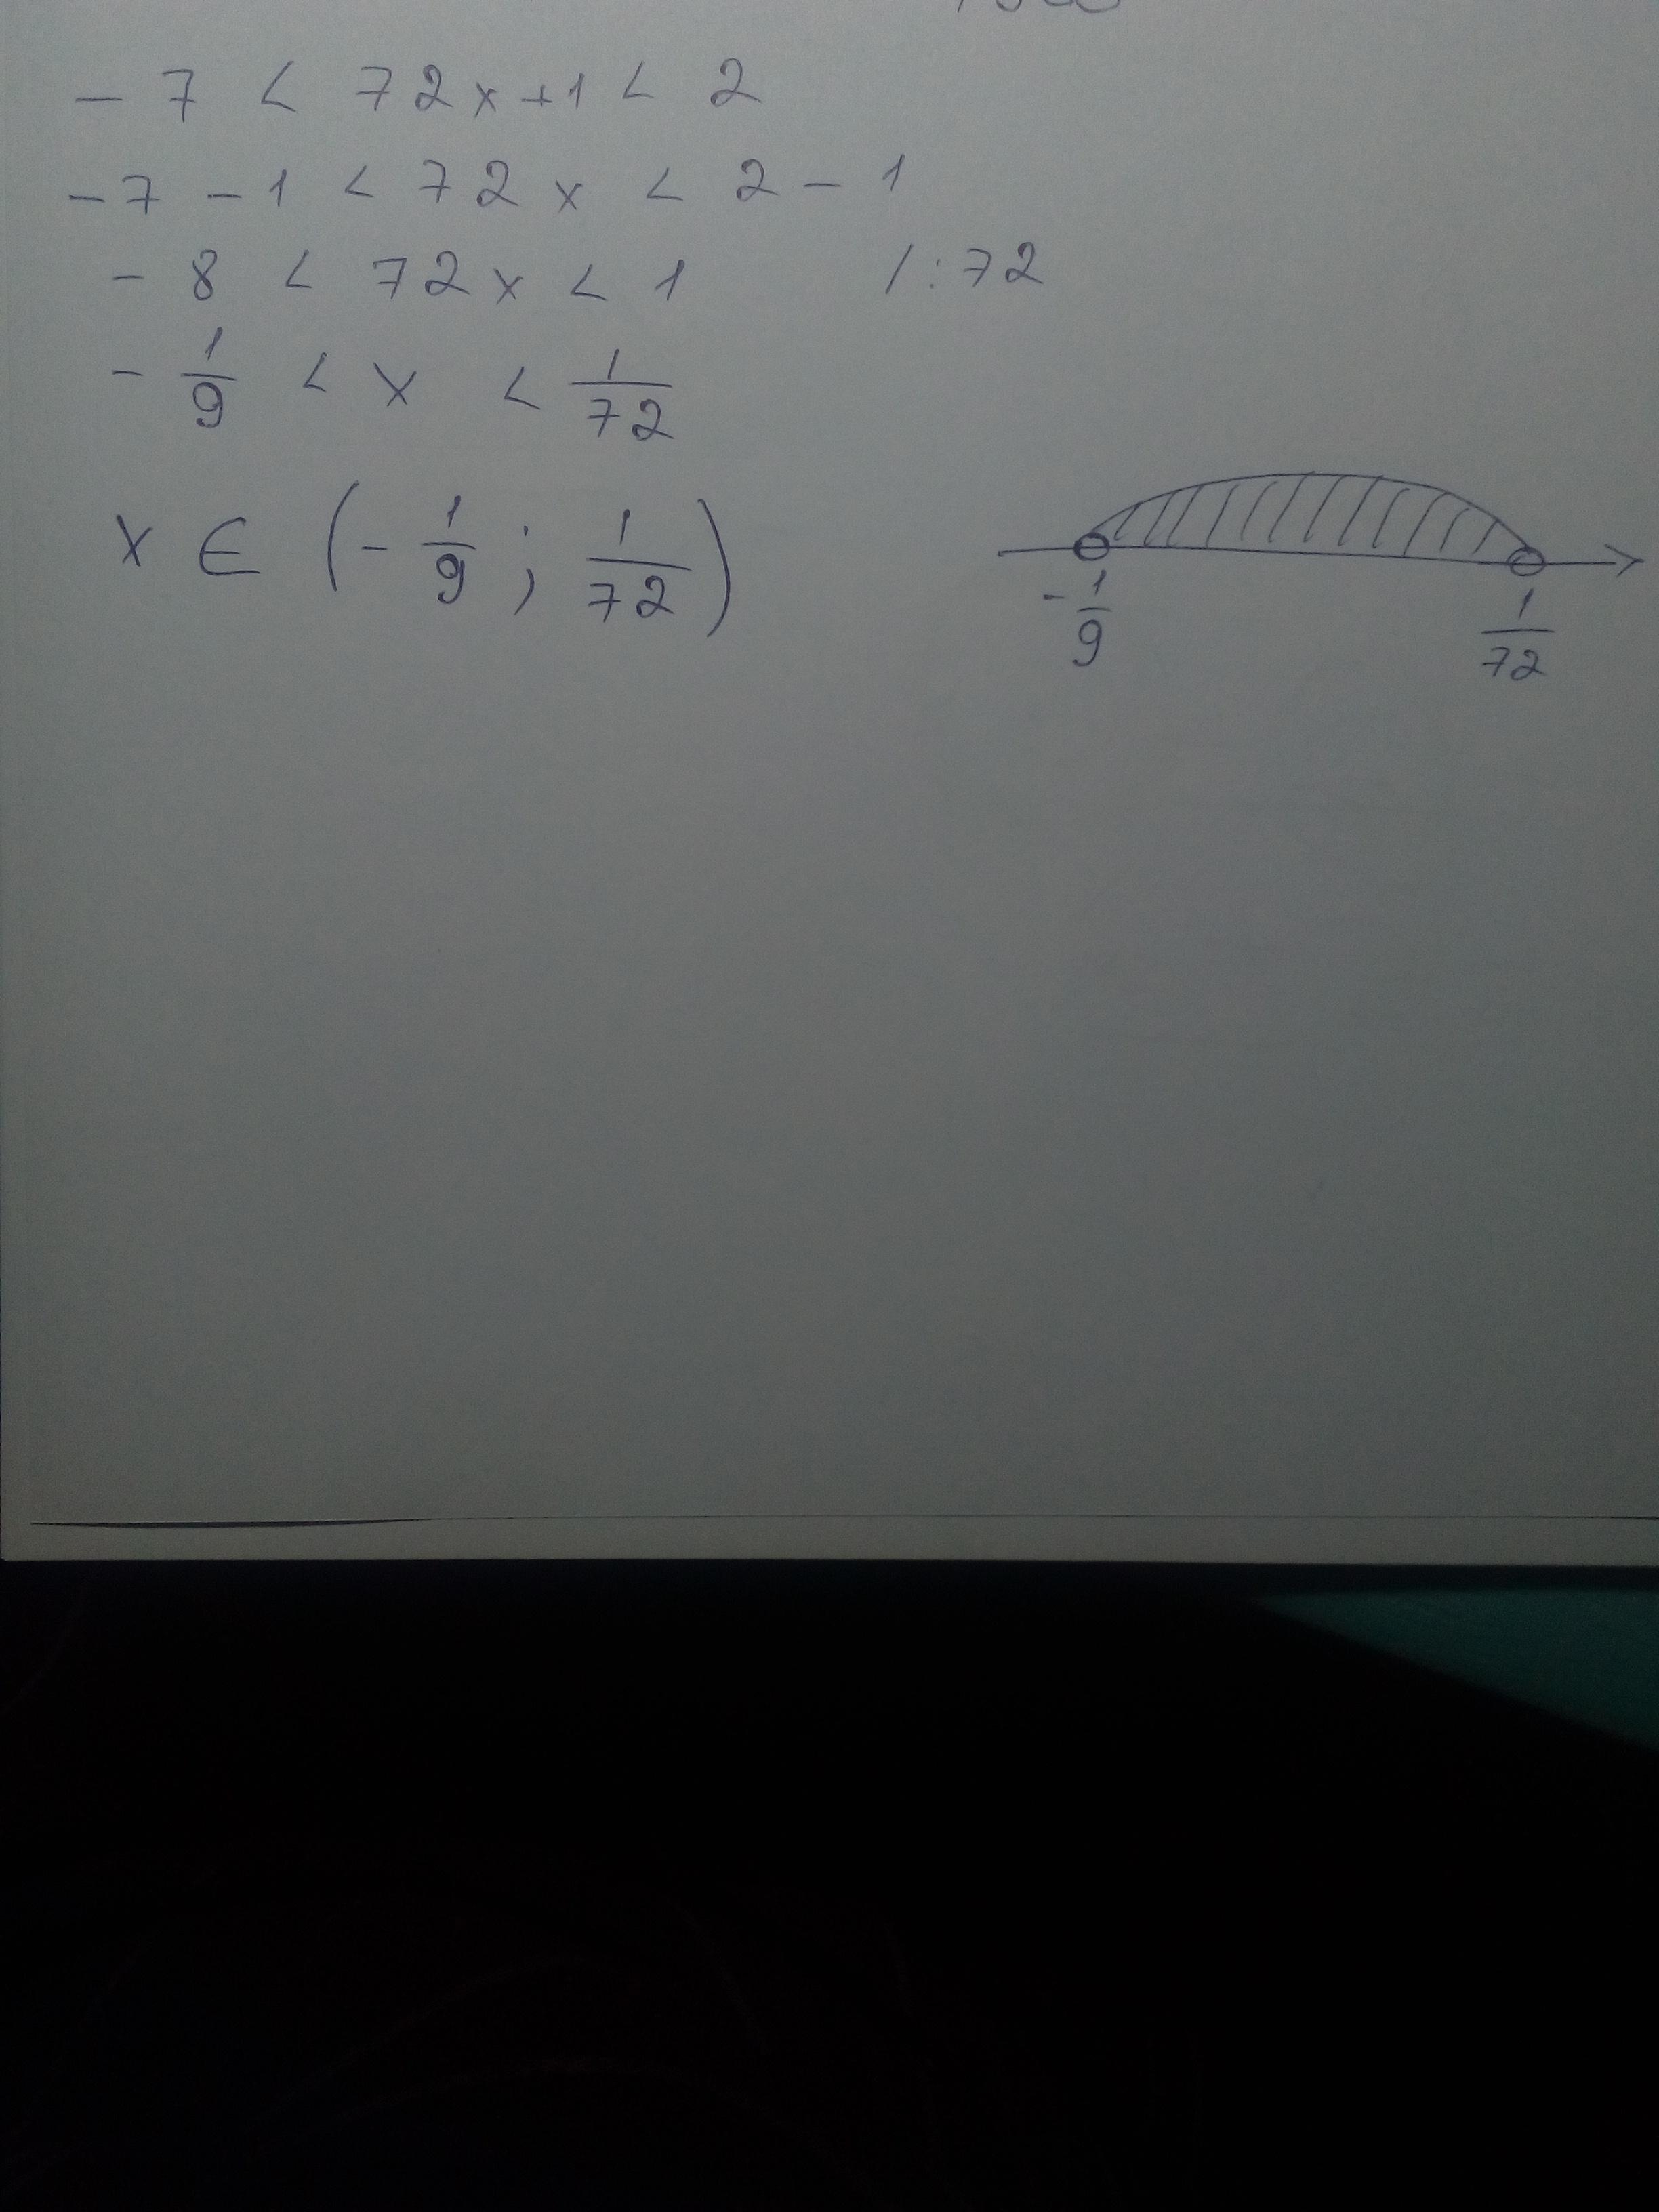 - 7 < 72x+1 < 2
-7 - 1 < 72x < 2 - 1
- 8 < 72x < 1 /:72
- 1/9 < x < 1/72
x ∈ (- 1/9 ; 1/72)
- 1/9 1/72